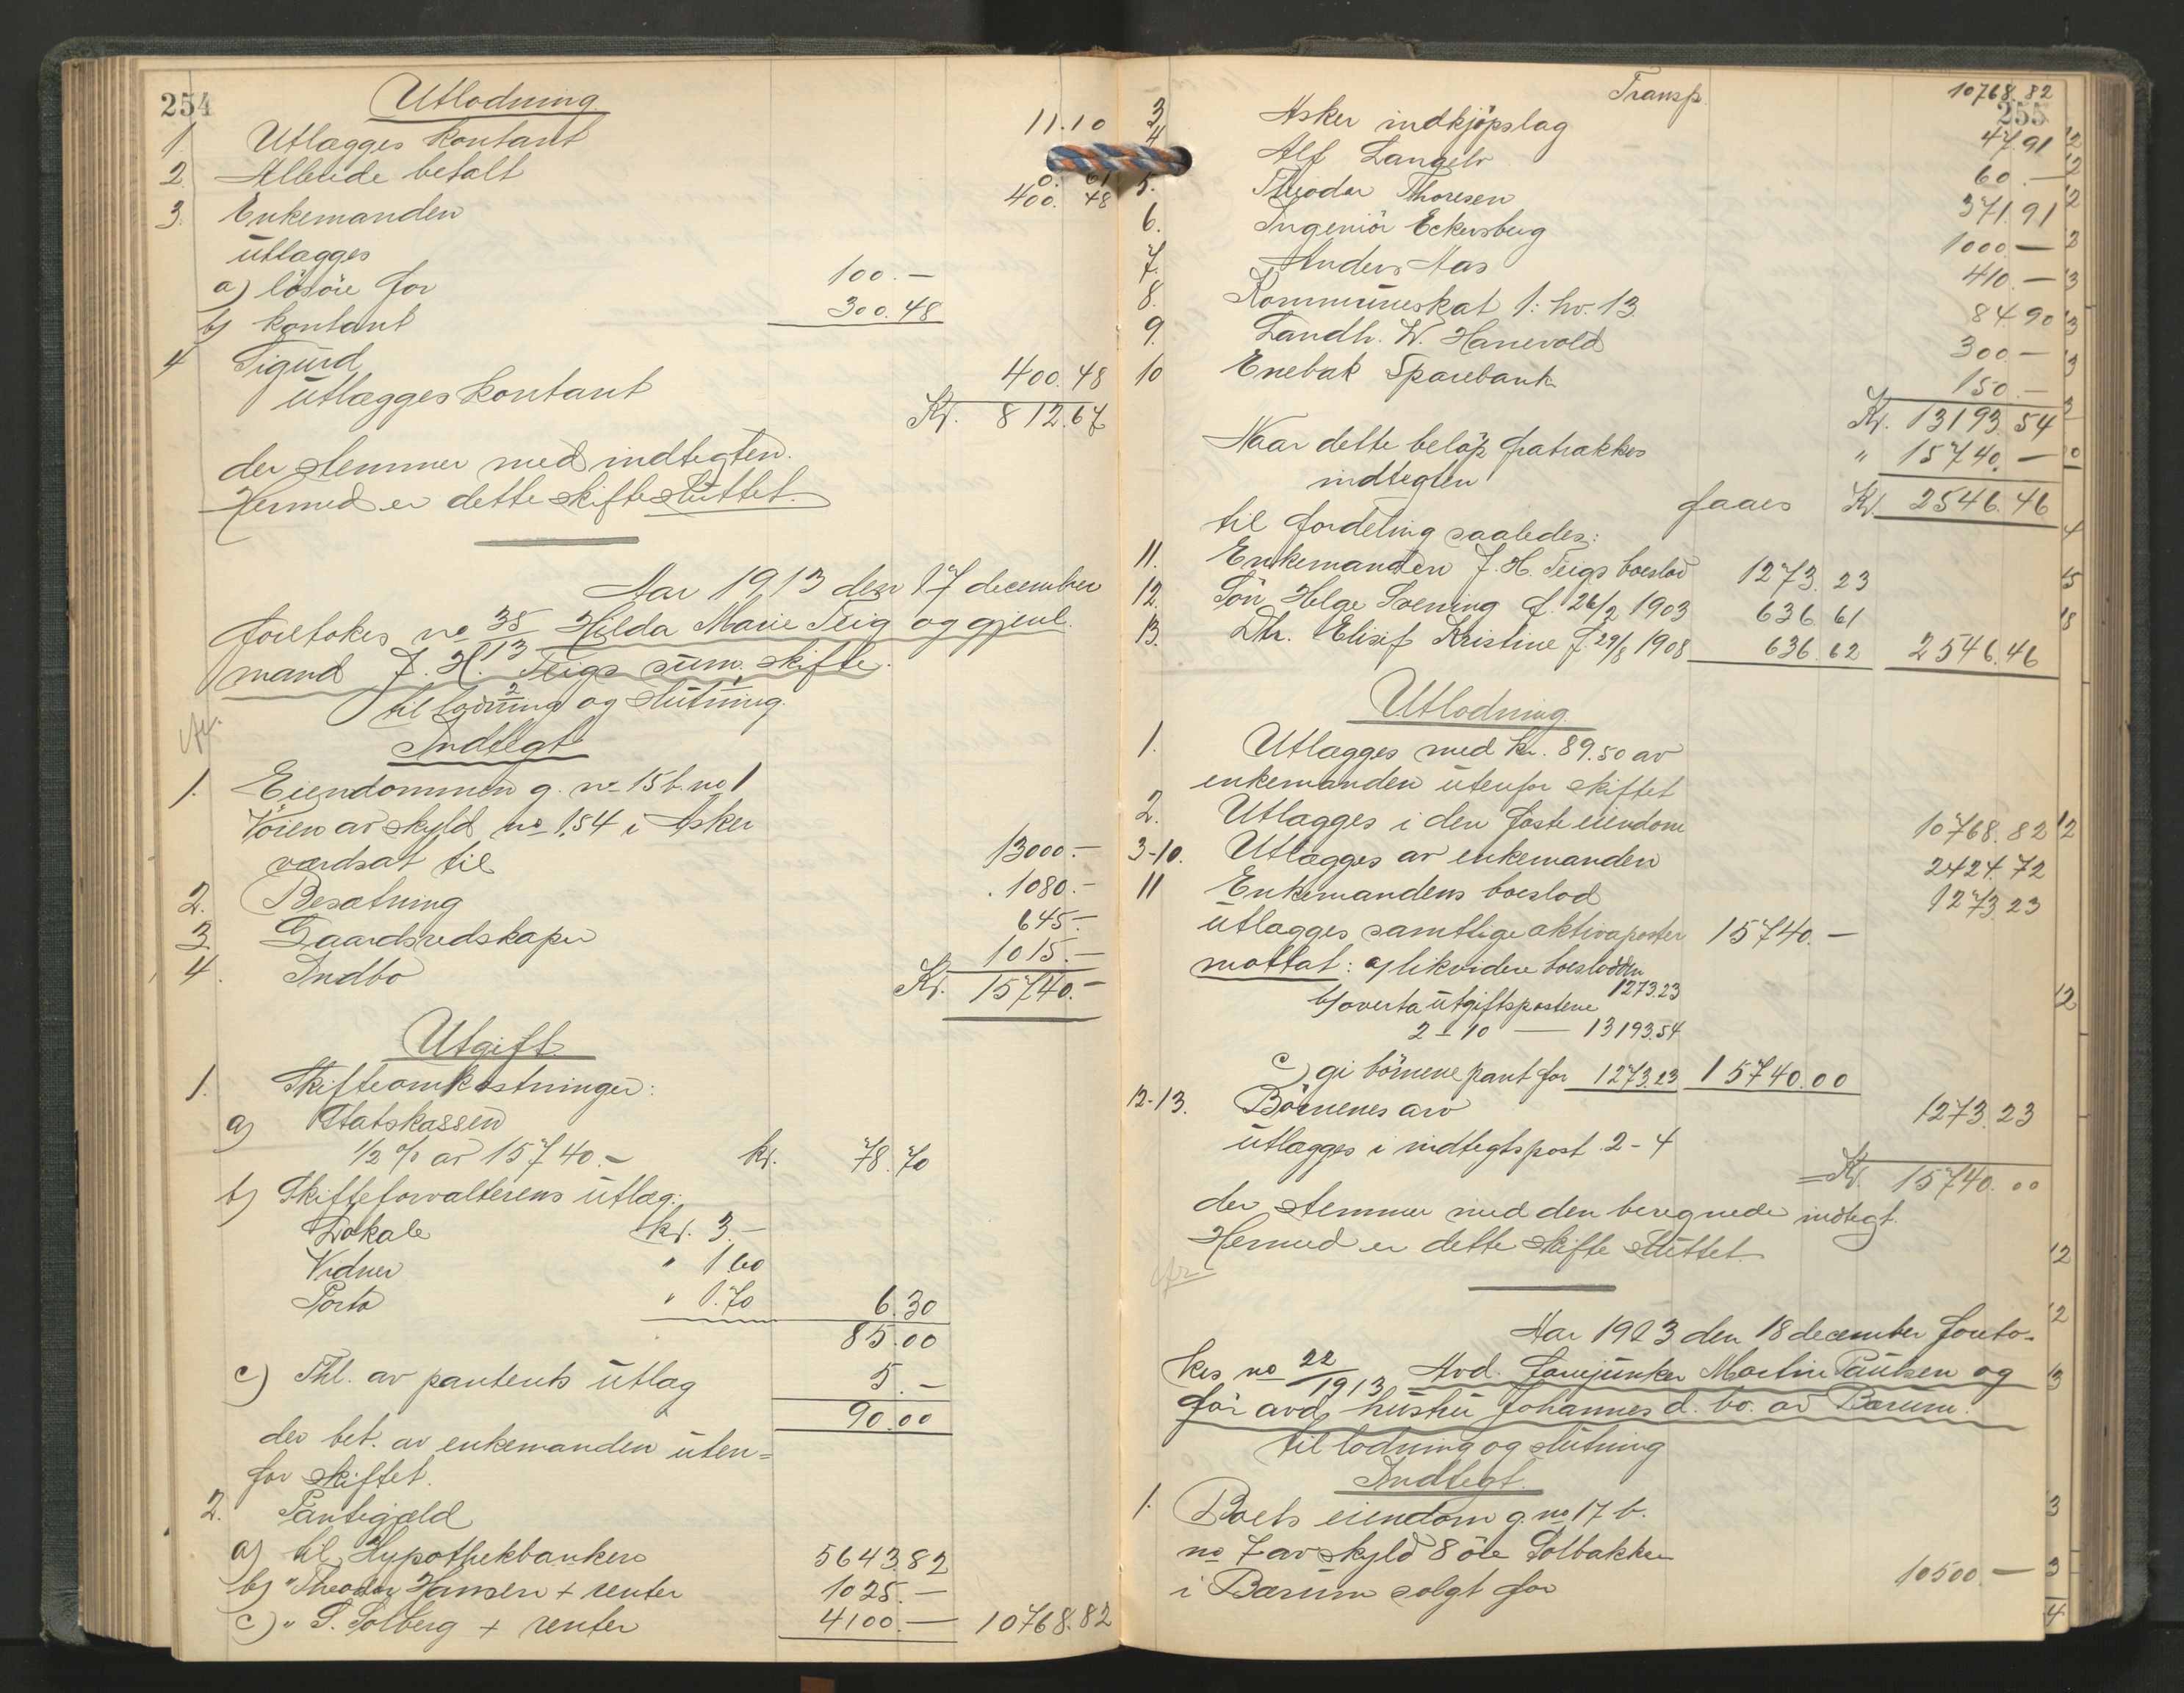 254
Utlodning
1. Utlægges kontant 11.10
2. Allerede betalt 0. 61
3. Enkemanden 400. 48
utlægges
a) lösöre for 100.-
b) kontant 300.48
4 Sigurd
utlægges kontant 400.48
Kr. 812.67
der stemmer med indtegten.
Hermed er dette skifte sluttet.
Aar 1913 den 17 december
foretokes no 35/13 Hilda Marie Teig og gjenl.
mand J. H. Teigs sum. skifte.
til lodning og slutning.
Indtegt
1. Eiendommen g. no 15 b. no 1
Vöien av skyld no 1,54 i Asker
værdsat til 13000.-
2. Besætning 1080.-
3. Gaardsredskaper 645.-
4. Indbo 1015.-
Kr. 15740.-
Utgift
1. Skifteomkostninger:
a) Statskassen
1/2 % av 15740.- kr. 78.70
b) Skifteforvalterens utlæg:
Lokale kr. 3.-
Vidner " 1.60
Porto " 1.70 6.30
85.00
c) Thl. av pantents utlæg 5.-
90.00
der bet. av enkemanden uten=
for skiftet.
2. Pantegjæld
a) til Hypothekbanken 5643.82
b) " Theodor Hansen + renter 1025.-
c) " S. Solberg + renter 4100.- 10768.82
Transp. 10768.82
255
3 Asker indkjöpslag 47.91
4 Alf Langelv 60.-
5. Theodor Thoresen 371.91
6. Ingeniör Eckersberg 1000.-
7. Anders Aas 410.-
8. Kommuneskat 1. hv. 13 84.90
9. Landh. W. Hanevold 300.-
10 Enebak Sparebank 150.-
Kr. 13193.54
Naar dette belöp fratrækkes
indtegten " 15740.-
faaes Kr. 2546.46
til fordeling saaledes:
11. Enkemanden J. H. Teigs boeslod 1273.23
12. Sön Helge Soening f. 26/2 1903 636.61
13. Dtr. Elisif Kristine f. 29/8 1908 636.62 2546.46
Utlodning
1. Utlægges med kr. 89.50 av
enkemanden utenfor skiftet
2. Utlægges i den faste eiendom 10768.82
3-10. Utlægges av enkemanden 2424.72
11 Enkemandens boeslod 1273.23
utlægges samtlige aktivaposter 15740.-
mottat: a) likvidere boeslodden
1273.23
b) overta utgiftspostene
2 - 10 — 13193.54
c) gi börnene pant for 1273.23 15740.00
12-13. Börnenes arv 1273.23
utlægges i indtegtspost 2-4
Kr. 15740.00
der stemmer med den beregnede indtegt.
Hermed er dette skifte sluttet.
Aar 1913 den 18 december foreto-
kes no 22/1913 Avd. Martin Paulsen og
för avd. hustru Johannes d. bo. av Bærum.
til lodning og slutning
Indtegt.
1. Boets eiendom g. no 17 b.
no 7 av skyld 8 öre Solbakken
i Bærum solgt for 10500.-